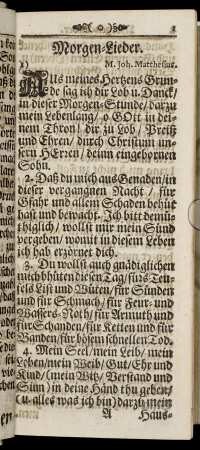 (o) 1
Morgen-Lieder.
1) M. Joh. Matthesius.
AUs meines Hertzens Grun-
de sag ich dir Lob u. Danck/
in dieser Morgen-Stunde/ darzu
mein Lebenlang/ o GOtt in dei-
nem Thron! dir zu Lob/ Preiß
und Ehren/ durch Christum un-
sern HErren/ deinn eingebornen
Sohn.
2. Daß du mich aus Genaden/ in
dieser vergangnen Nacht/ für
Gfahr und allem Schaden behüt
hast und bewacht. Jch bitt demü-
thiglich/ wollst mir mein Sünd
vergeben/ womit in diesem Leben
ich hab erzörnet dich.
3. Du wollst auch gnädiglichen
mich bhüten diesen Tag/ fürs Teu-
fels List und Wüten/ für Sünden
und für Schmach/ für Feur- und
Wassers-Noth/ für Armuth und
für Schanden/ für Ketten und für
Banden/ für bösem schnellen Tod.
4. Mein Seel/ mein Leib/ mein
Leben/ mein Weib/ Gut/ Ehr und
Kind/ (mein Witz/ Verstand und
Sinn) in deine Händ thu geben/
(u. alles was ich bin) darzu mein
A Haus-